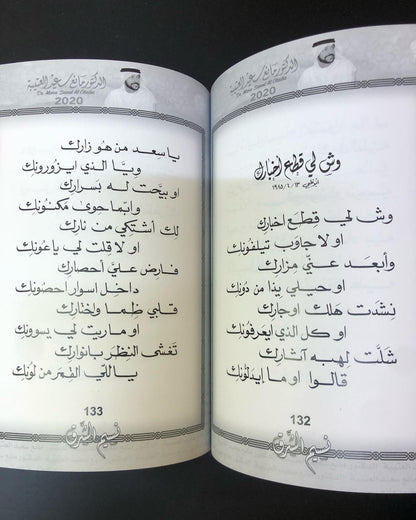 الدكتور مانع سعيد العتيبة
Dr. Mana Saeed Al Otaiba
2020
وش لي قطع أخبارك
أبوظبي ١٣ / ٤ / ١٩٨٥
وش لي قطع اخبارك
او لا جاوب تيلفونك
وأبعد عني مزارك
او حيلي يذا من دونك
نشدت هلك او جارك
او كل الذي ايعرفونك
شلت لهبه آثارك
قالوا او ما إيدلونك
132
نسيم الشرق
الدكتور مانع سعيد العتيبة
Dr. Mana Saeed Al Otaiba
2020
يا سعد من هو زارك
ويا الذي ايزورونك
او بيحت له بسرارك
وابما حوى مكنونك
لك أشتكي من نارك
او لا قلت لي ياعونك
فارض علي أحصارك
داخل اسوار احصونك
قلبي ظما واختارك
او ماريت لي يسوونك
تغشى النظر بانوارك
ياللي القمر من لونك
133
نسيم الشرق